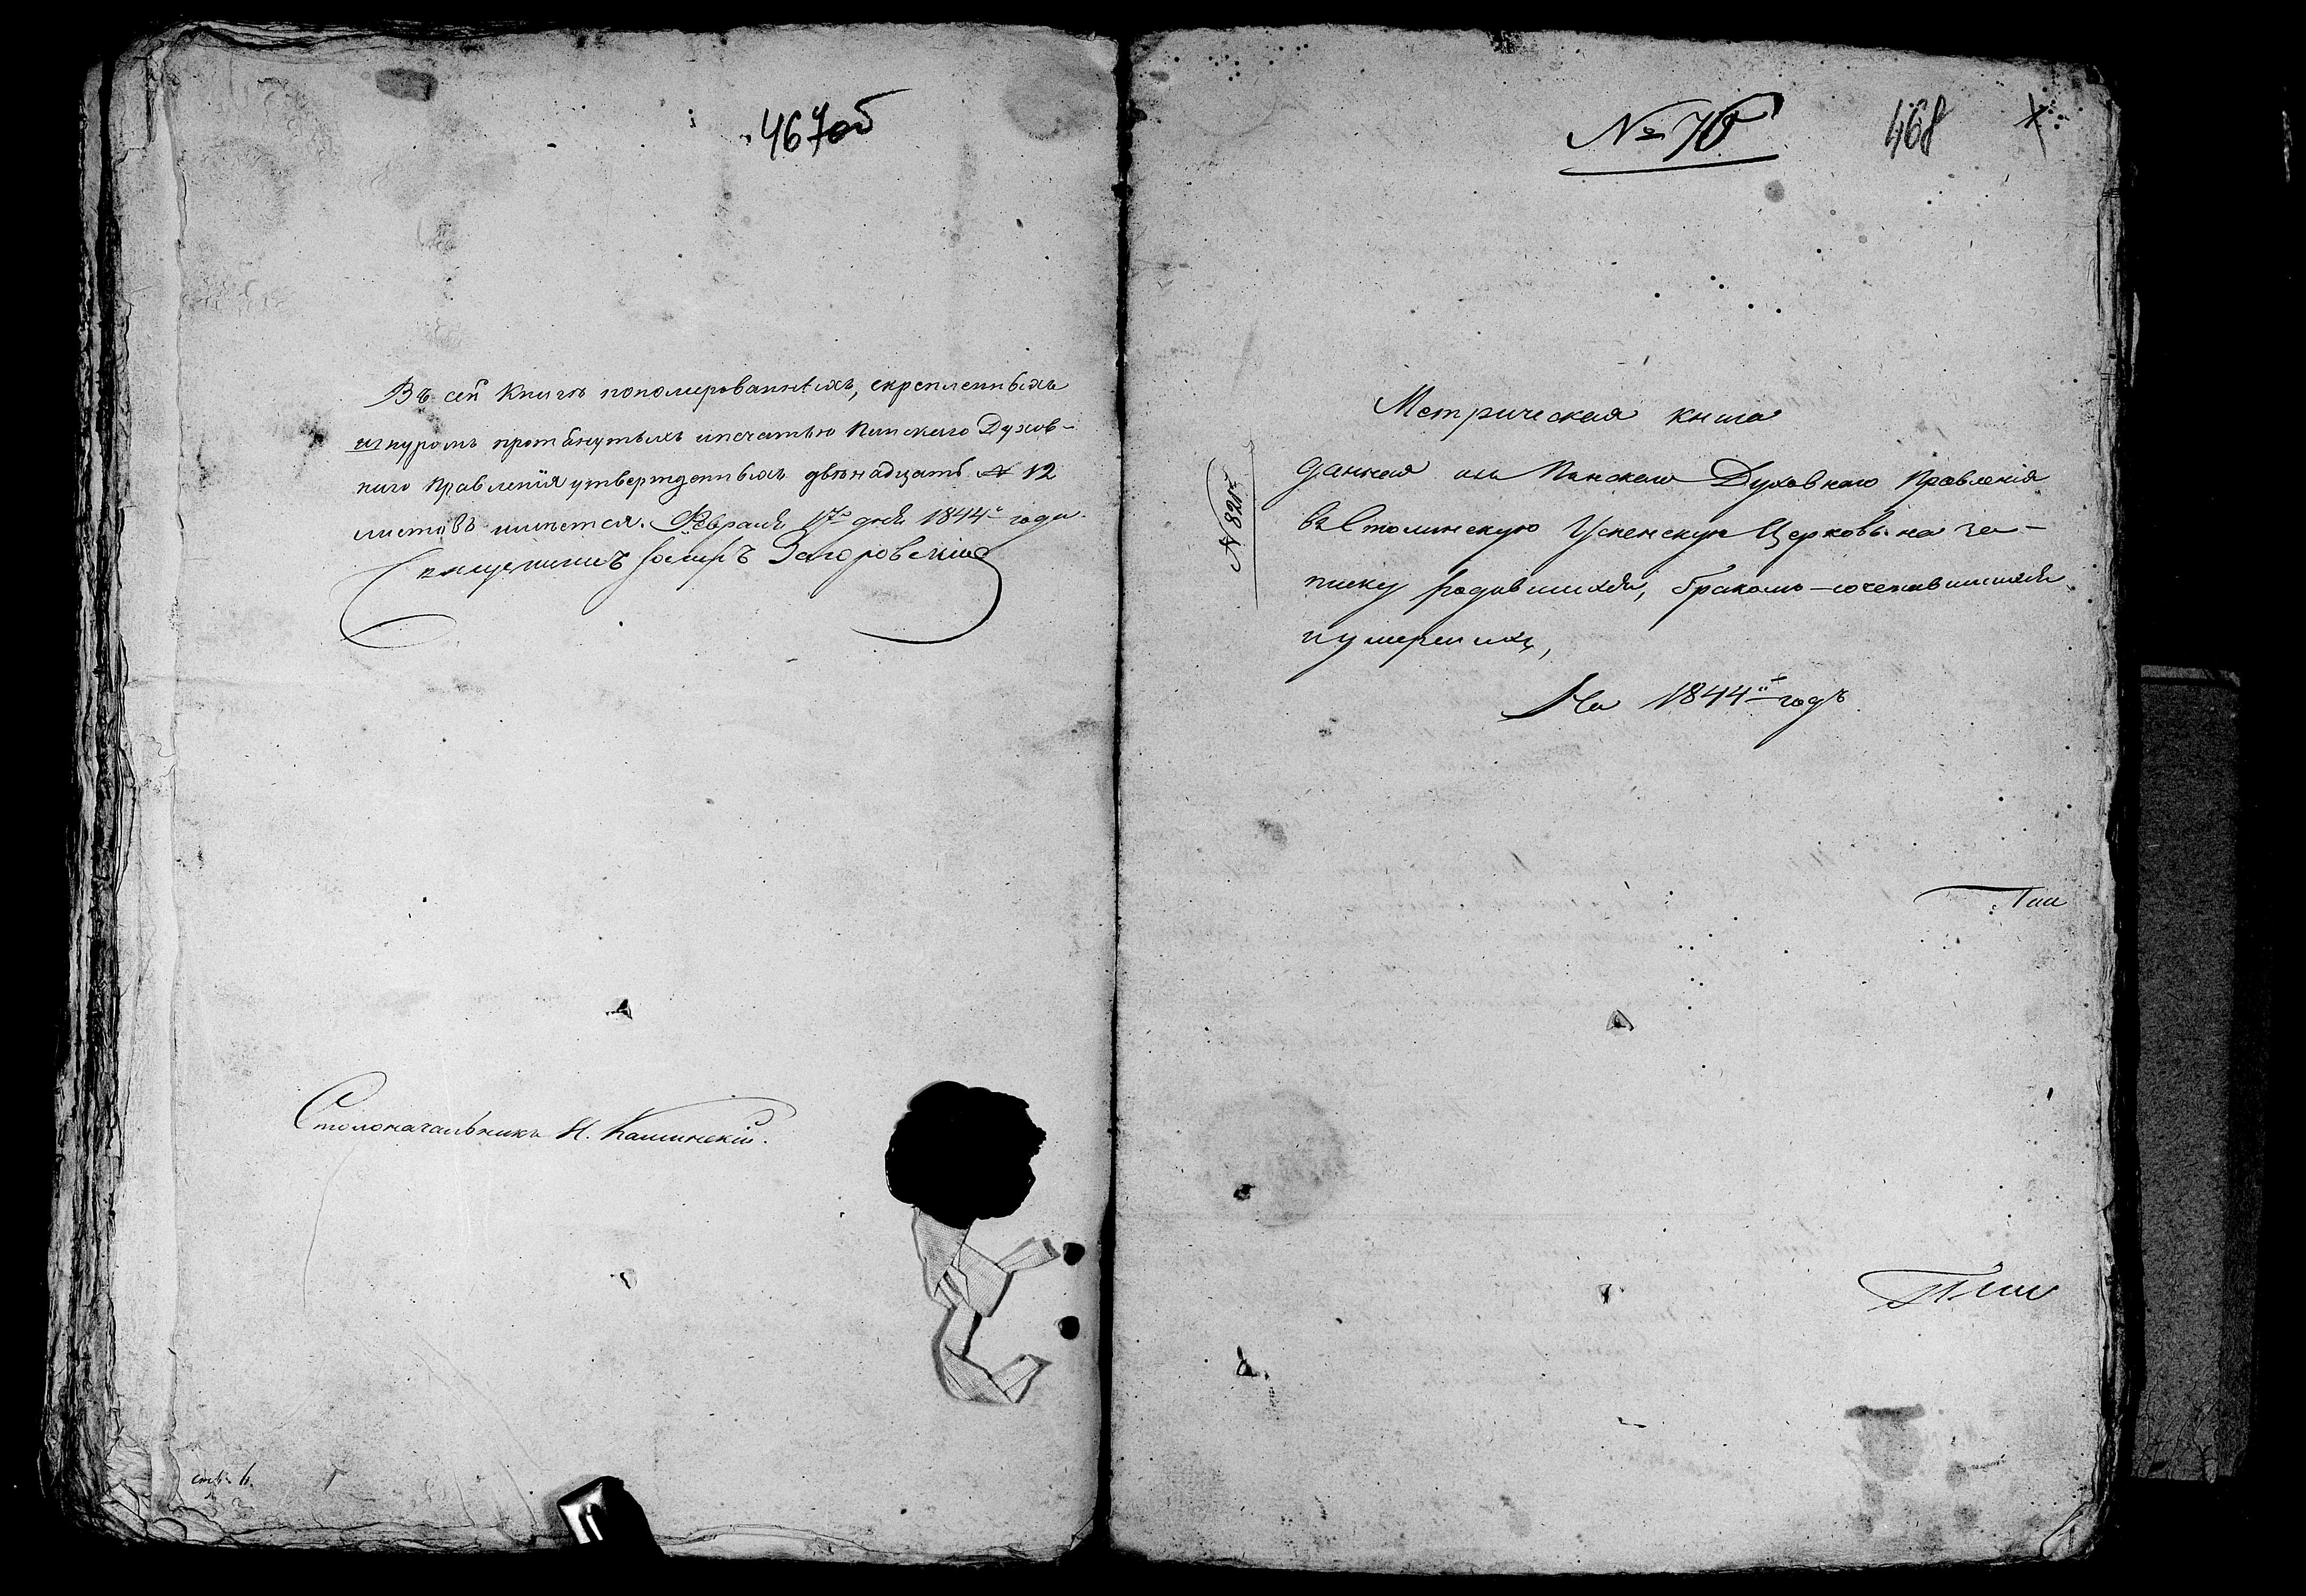 467об
Въ сей Книгѣ пономерованныхъ, скрепленныхъ
шнуромъ протянутыхъ и печатью Пинскаго Духов-
наго Правленія утвержденныхъ двѣнадцать 12
листовъ имѣется. Февраля 17го дня 1844го года.
Священникъ Іосифъ Загоровскій
Столоначальникъ Н. Калинскій.
№ 70
468
№ 821
Метрическая книга
данная изъ Пинскаго Духовнаго Правленія
въ Столинскую Успенскую Церковь на за-
писку родившихся, бракомъ-сочетавшихся
и умершихъ,
На 1844й годъ